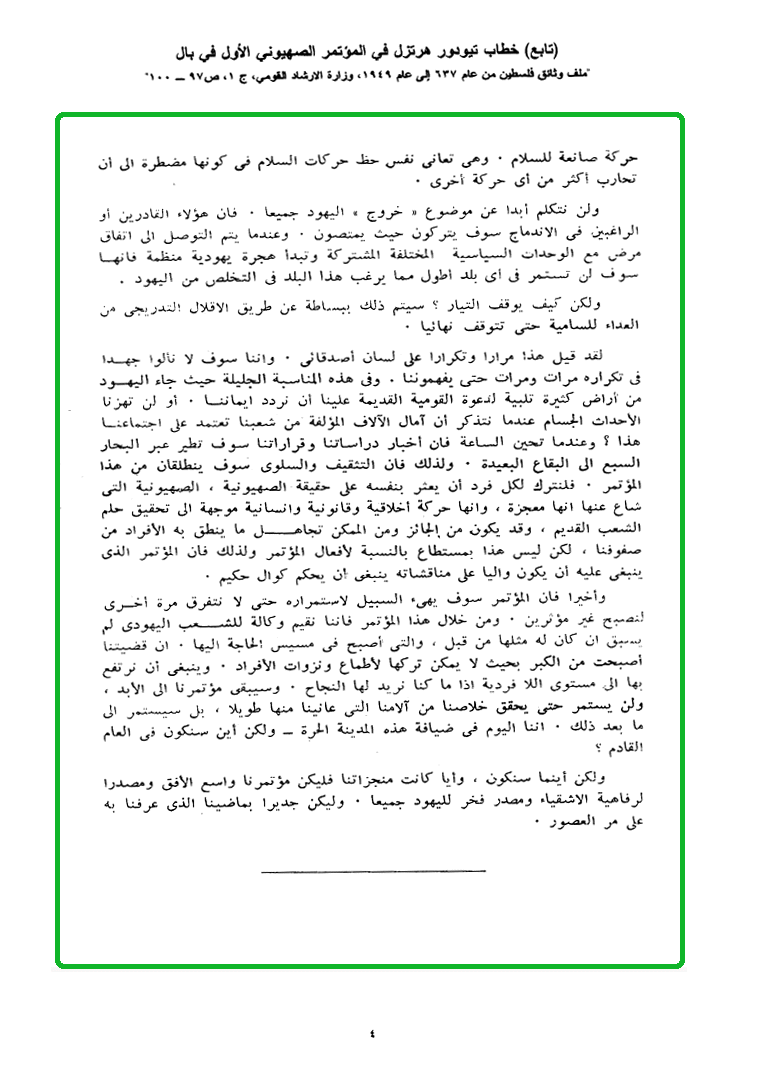 (تابع) خطاب تيودور هرتزل في المؤتمر الصهيوني الأول في بال
"ملف وثائق فلسطين من عام ٦٣٧ إلى عام ١٩٤٩، وزارة الارشاد القومي، ج ١، ص٩٧ ــ ١٠٠"
حركة صانعة للسلام ٠ وهى تعانى نفس حظ حركات السلام فى كونها مضطرة الى أن
تحارب أكثر من أى حركة أخرى ٠
ولن نتكلم أبدا عن موضوع « خروج » اليهود جميعا ٠ فان هؤلاء القادرين أو
الراغبين فى الاندماج سوف يتركون حيث يمتصون ٠ وعندما يتم التوصل الى اتفاق
مرض مع الوحدات السياسية المختلفة المشتركة وتبدأ هجرة يهودية منظمة فانهـا
سوف لن تستمر فى أى بلد أطول مما يرغب هذا البلد فى التخلص من اليهود ٠
ولكن كيف يوقف التيار ؟ سيتم ذلك ببساطة عن طريق الاقلال التدريجى من
العداء للسامية حتى تتوقف نهائيا ٠
لقد قيل هذا مرارا وتكرارا على لسان أصدقائى ٠ واننا سوف لا نألوا جهـدا
فى تكراره مرات ومرات حتى يفهموننا ٠ وفى هذه المناسبة الجليلة حيث جاء اليهـود
من أراض كثيرة تلبية لدعوة القومية القديمة علينا أن نردد ايماننـا ٠ أو لن تهزنا
الأحداث الجسام عندما نتذكر أن آمال الآلاف المؤلفة من شعبنا تعتمد على اجتماعنـا
هذا ؟ وعندما تحين الساعة فان أخبار دراساتنا وقراراتنا سوف تطير عبر البحار
السبع الى البقاع البعيدة ٠ ولذلك فان التثقيف والسلوى سوف ينطلقان من هذا
المؤتمر ٠ فلنترك لكل فرد أن يعثر بنفسه على حقيقة الصهيونية ، الصهيونية التى
شاع عنها انها معجزة ، وانها حركة أخلاقية وقانونية وانسانية موجهة الى تحقيق حلم
الشعب القديم ، وقد يكون من الجائز ومن الممكن تجاهـــل ما ينطق به الأفراد من
صفوفنا ، لكن ليس هذا بمستطاع بالنسبة لأفعال المؤتمر ولذلك فان المؤتمر الذى
ينبغى عليه أن يكون واليا على مناقشاته ينبغى ان يحكم كوال حكيم ٠
وأخيرا فان المؤتمر سوف يهىء السبيل لاستمراره حتى لا نتفرق مرة أخـرى
لنصبح غير مؤثرين ٠ ومن خلال هذا المؤتمر فاننا نقيم وكالة للشـــعب اليهودى لم
يسبق ان كان له مثلها من قبل ، والتى أصبح فى مسيس الحاجة اليها ٠ ان قضيتنا
أصبحت من الكبر بحيث لا يمكن تركها لأطماع ونزوات الأفراد ٠ وينبغى أن نرتفع
بها الى مستوى اللا فردية اذا ما كنا نريد لها النجاح ٠ وسيبقى مؤتمرنا الى الأبد ،
ولن يستمر حتى يحقق خلاصنا من آلامنا التى عانينا منها طويلا ، بل سيستمر الى
ما بعد ذلك ٠ اننا اليوم فى ضيافة هذه المدينة الحرة ــ ولكن أين سنكون فى العام
القادم ؟
ولكن أينما سنكون ، وأيا كانت منجزاتنا فليكن مؤتمرنا واسع الأفق ومصدرا
لرفاهية الاشقياء ومصدر فخر لليهود جميعا ٠ وليكن جديرا بماضينا الذى عرفنا به
على مر العصور ٠
٤